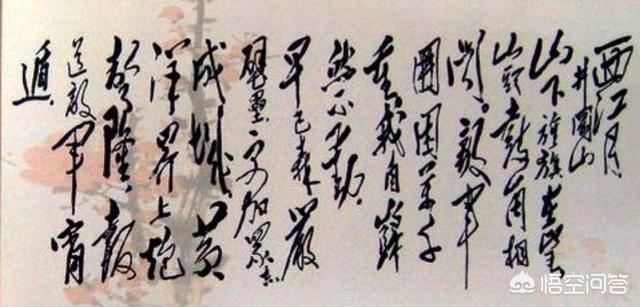 西江月
井岡山
山下旌旗在望
山头鼓角相
闻。敌军
围困万千
重我自岿
然不动。
早已森嚴
壁壘更加众志
成城。黄
洋界上炮
声隆〻报
道敌军宵
遁。
悟空问答